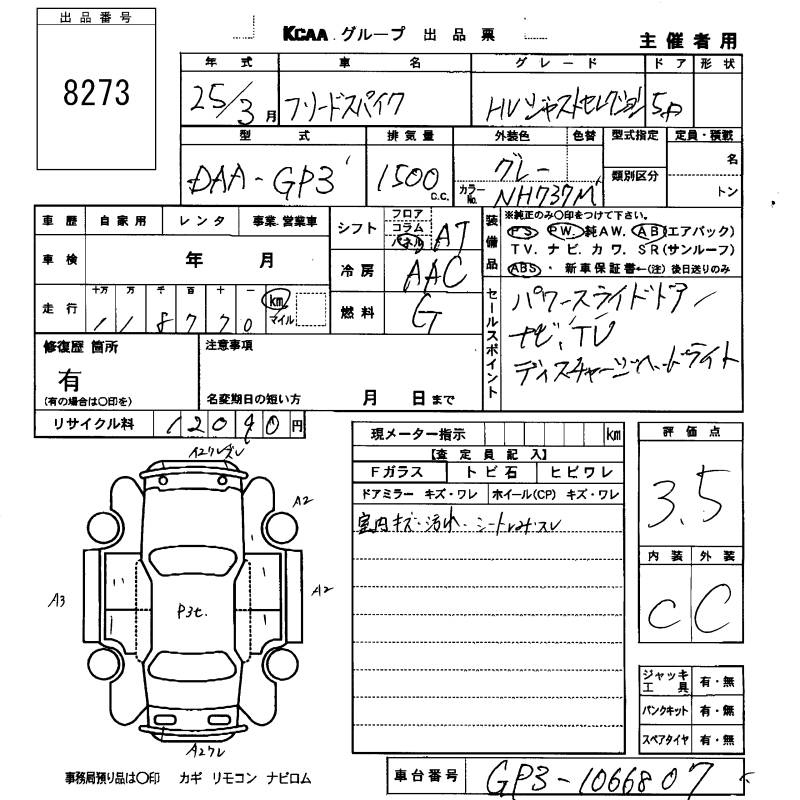 出品番号
8273
KCAA グループ 出品票
主催者用
年式 車名 グレード ドア 形状
25/3月 フリードスパイク HV ジャストセレクション 5D
型式 排気量 外装色 色替 型式指定 定員・積載
DAA-GP3 1500 c.c. グレー 類別区分 名
カラーNo. NH737M トン
車歴 自家用 レンタ 事業・営業車
車検 年 月
走行 十万 万 千 百 十 一 km マイル
118770
シフト フロア コラム パネル AT
冷房 AAC
燃料 G
装備品
※純正のみ○印をつけて下さい。
PS PW. 純AW. AB(エアバック)
TV. ナビ. カワ. SR(サンルーフ)
ABS ・ 新車保証書←(注)後日送りのみ
セールスポイント
パワースライドドア
ナビ、TV
ディスチャージヘッドライト
修復歴 箇所
有
(有の場合は○印を)
注意事項
名変期日の短い方 月 日まで
リサイクル料 12090円
現メーター指示 km
【査定員記入】
Fガラス トビ石 ヒビワレ
ドアミラー キズ・ワレ ホイール(CP) キズ・ワレ
室内キズ・汚れ・シート
評価点
3.5
内装 外装
C C
A2
A3
P3t.
A2
ジャッキ工具 有・無
パンクキット 有・無
スペアタイヤ 有・無
事務局預り品は○印 カギ リモコン ナビロム
車台番号 GP3-1066807